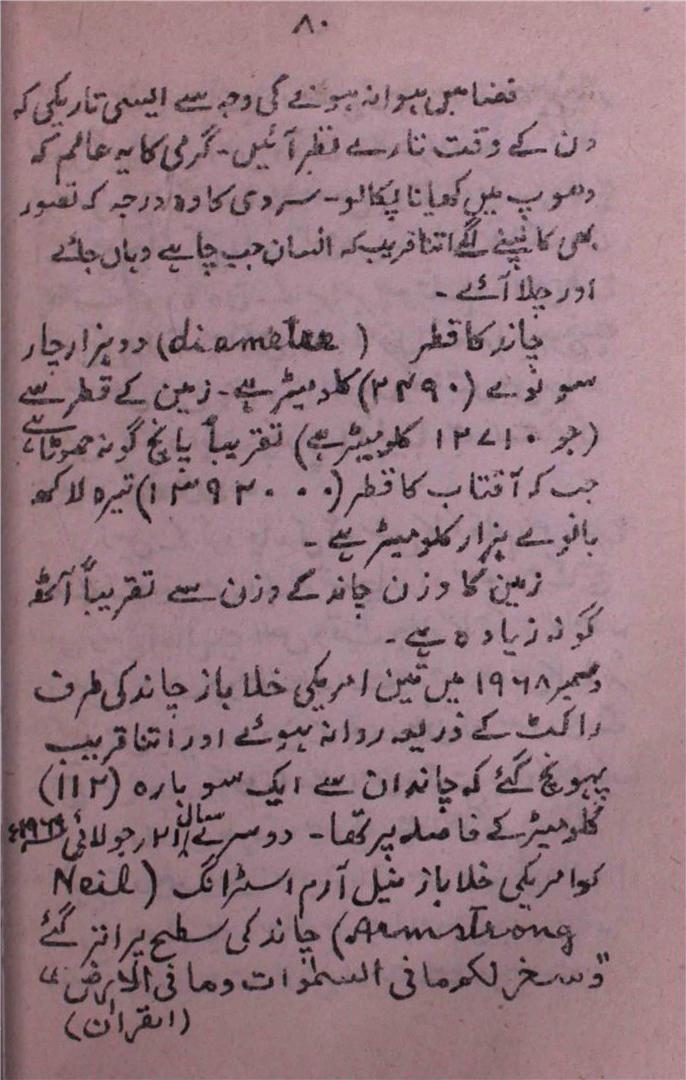 ۸۰
فضا میں ہوا نہ ہونے کی وجہ سے ایسی تاریکی کہ
دن کے وقت تارے نظر آئیں۔ گرمی کا یہ عالم کہ
دھوپ میں کھانا پکالو۔ سردی کا وہ درجہ کہ تصور
بھی کانپنے لگے اتنا قریب کہ انسان جب چاہے وہاں جائے
اور چلا آئے۔
چاند کا قطر (diameter) دو ہزار چار
سو نوے (۲۴۹۰) کلومیٹر ہے۔ زمین کے قطر سے
(جو ۱۲۷۱۰ کلومیٹر ہے) تقریباً پانچ گونہ چھوٹا ہے
جب کہ آفتاب کا قطر (۱۳۹۲۰۰۰) تیرہ لاکھ
بانوے ہزار کلومیٹر ہے۔
زمین کا وزن چاند کے وزن سے تقریباً آٹھ
گونہ زیادہ ہے۔
دسمبر ۱۹۶۸ میں تین امریکی خلا باز چاند کی طرف
راکٹ کے ذریعہ روانہ ہوئے اور اتنا قریب
پہونچ گئے کہ چاند ان سے ایک سو بارہ (۱۱۲)
کلومیٹر کے فاصلہ پر تھا۔ دوسرے سال ۲۱؍ جولائی ۱۹۶۹ء
کو امریکی خلا باز نیل آرم اسٹرانگ (Neil
Armstrong) چاند کی سطح پر اتر گئے
"وسخر لکم ما فی السمٰوات وما فی الارض"
(القرآن)